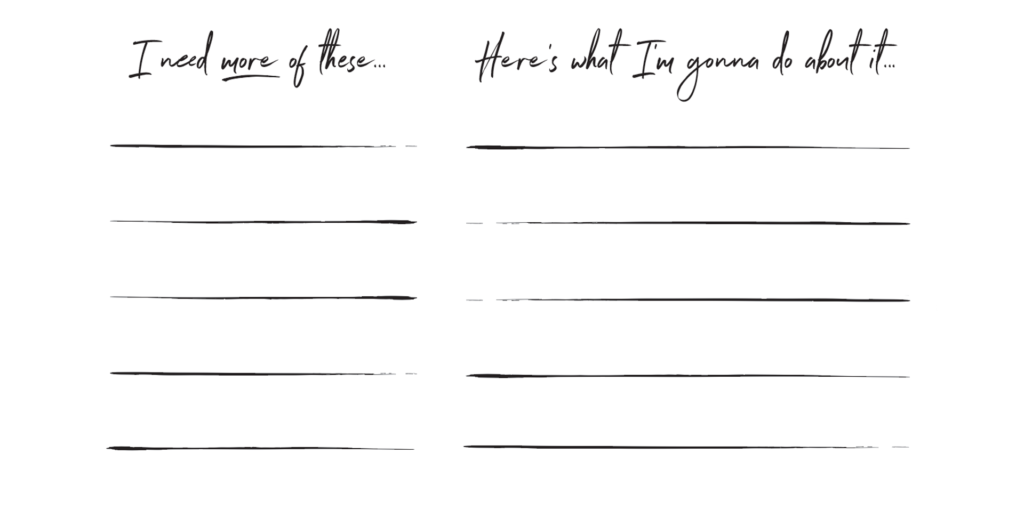 I need more of these...
Here's what I'm gonna do about it...